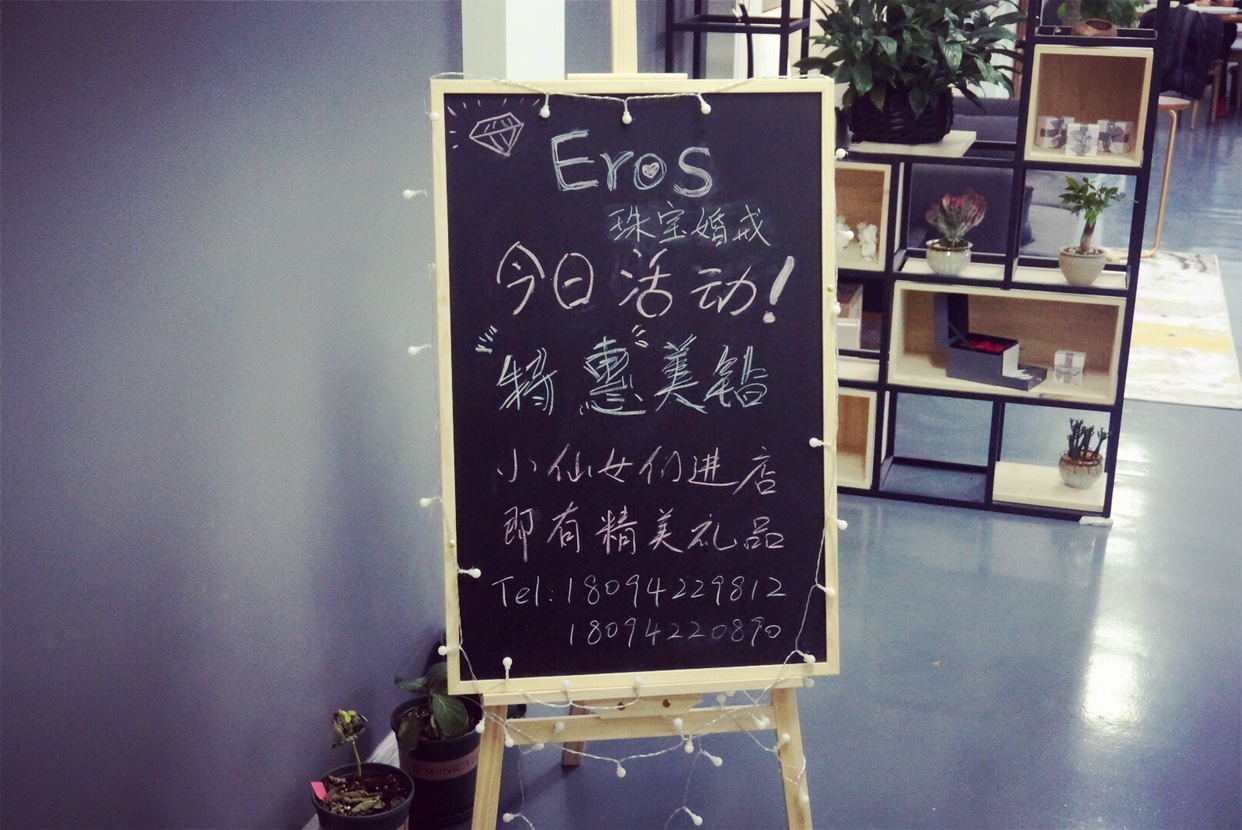 Eros
珠宝婚戒
今日活动!
"特惠"美钻
小仙女们进店
即有精美礼品
Tel:18094229812
18094220890